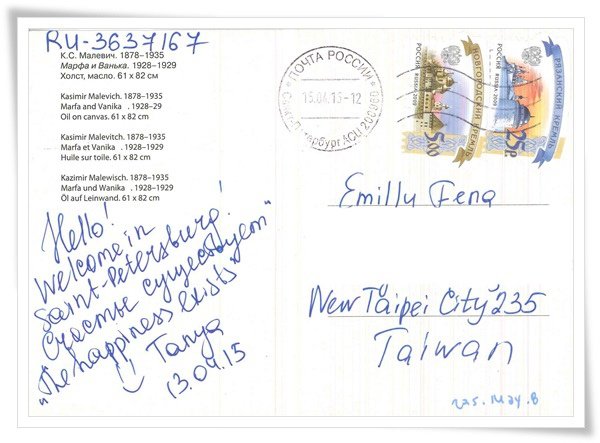 RU-3637167
К.С. Малевич. 1878–1935
Марфа и Ванька. 1928–1929
Холст, масло. 61 x 82 см
Kasimir Malevich. 1878–1935
Marfa and Vanika . 1928–29
Oil on canvas. 61 x 82 cm
Kasimir Malevitch. 1878–1935
Marfa et Vanika . 1928–1929
Huile sur toile. 61 x 82 cm
Kazimir Malewisch. 1878–1935
Marfa und Wanika . 1928–1929
Öl auf Leinwand. 61 x 82 cm
Hello!
Welcome in
Saint-Petersburg!
"Счастье существует"
"The happiness exists"
Tanya
13.04.15
ПОЧТА РОССИИ
15.04.15-12
Санкт-Петербург АСЦ 200960
РОССИЯ RUSSIA 2009
НОВГОРОДСКИЙ КРЕМЛЬ
5.00
РОССИЯ RUSSIA 2009
РЯЗАНСКИЙ КРЕМЛЬ
25р
Emilly Feng
New Taipei City 235
Taiwan
225. May. 8